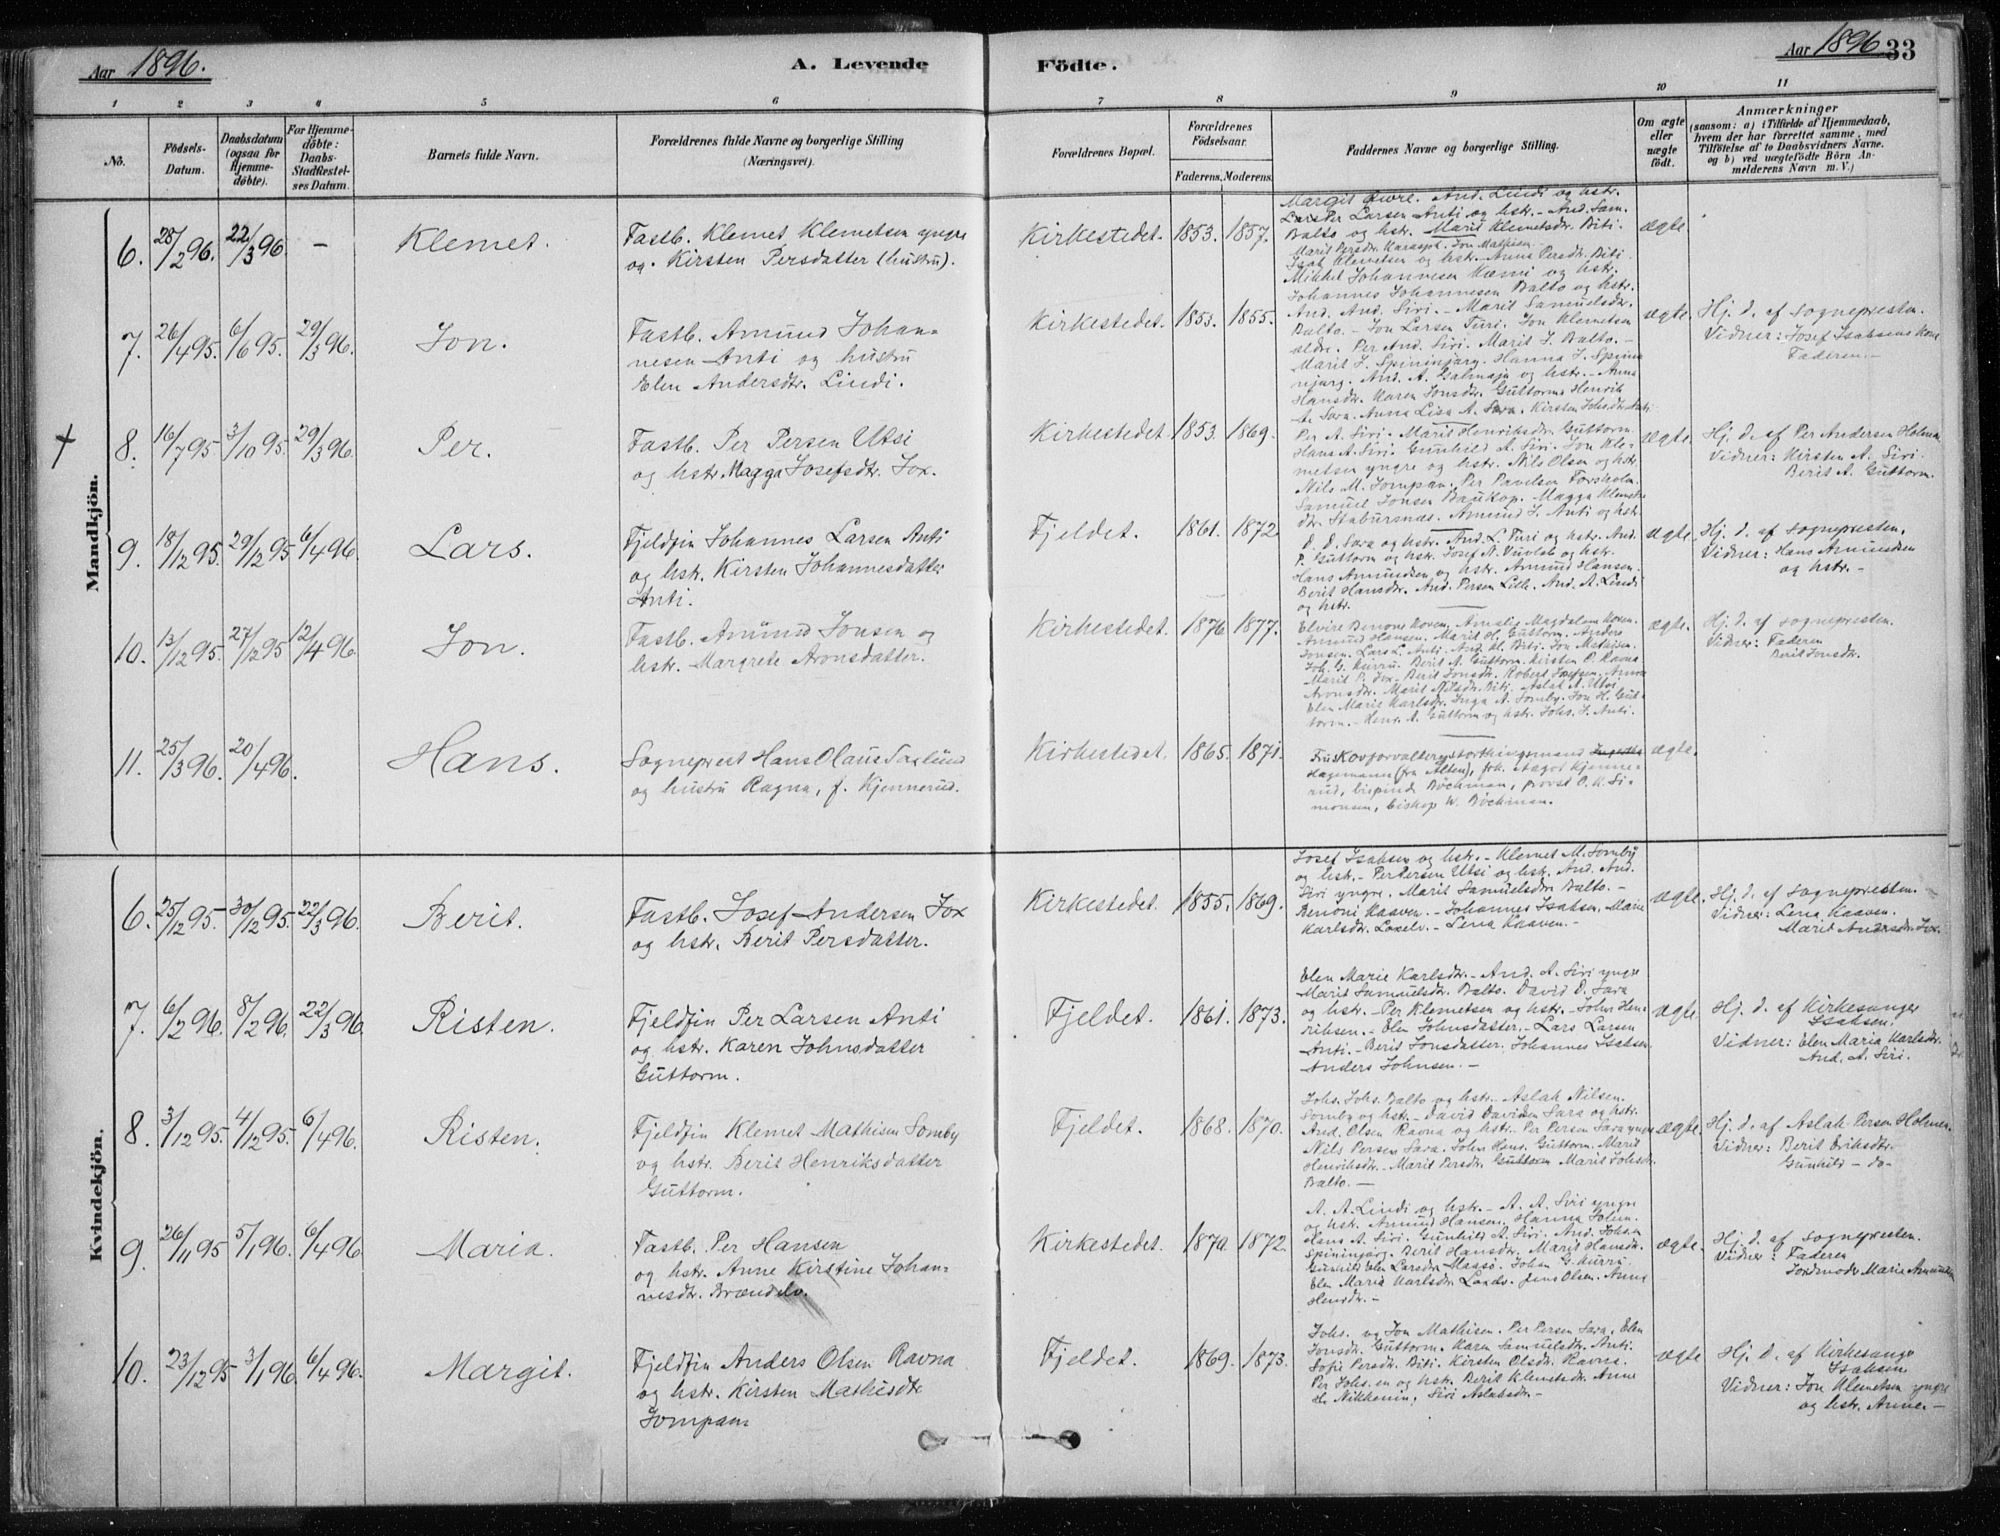 Aar 1896.
A. Levende
Födte.
Aar 1896
33
1 2 3 4 5 6 7 8 9 10 11
No.
Födsels-
Datum.
Daabsdatum
(ogsaa for
Hjemme-
döbte).
For Hjemme-
döbte:
Daabs-
Stadfæstel-
ses Datum.
Barnets fulde Navn.
Forældrenes fulde Navne og borgerlige Stilling
(Næringsvei).
Forældrenes Bopæl.
Forældrenes
Födselsaar.
Faderens. Moderens.
Faddernes Navne og borgerlige Stilling.
Om ægte
eller
uægte
födt.
Anmærkninger
(saasom: a) i Tilfælde af Hjemmedaab,
hvem der har forrettet samme, med
Tilföielse af to Daabsvidners Navne.
og b) ved uægtefödte Börn An-
melderens Navn m. V.)
Mandkjön.
6. 28/2 96. 22/3 96 – Klemet.
Fastb. Klemet Klemetsen yngre
og Kirsten Persdatter (hustru).
Kirkestedet. 1853. 1857.
Margit And. Lindi og hstr.
Per Larsen Anti og hstr. – And. Sam.
Balto og hstr. Marit Klemetsdtr. Biti.
Marit Persdtr. Jon Mathisen.
Isak Klemetsen og hstr. – Anna Persdtr. Biti
ægte
7. 26/4 95. 6/6 95. 29/3 96. Jon.
Fastb. Amund Johan-
nesen Anti og hustru
Elen Andersdtr. Lindi.
Kirkestedet. 1853. 1855.
Mikkel Johannesen og hstr.
Johannes Johannesen Balto og hstr.
And. And. Siri. – Marit Samuelsdtr.
Balto. – Jon Larsen Turi. Jon Klemetsen
ældre. Per And. Siri. Marit J. Balto. –
Marit J. Spininjarg. Hanna J. Spinin
njarg. And. A. og hstr. – Anna
Hansdtr. Karen Jonsdtr. Guttorm. Henrik
A. Sara. Anna Lisa A. Sara. Kirsten Johs.dtr. Anti
ægte.
Hj. d. af sognepresten.
Vidner: Josef Isaksens Kone
Faderen. –
+
8. 16/7 95 3/10 95. 29/3 96. Per.
Fastb. Per Persen Utsi
og hstr. Magga Josefsdtr. Jox.
Kirkestedet. 1853. 1869.
Per A. Siri. Marit Henriksdtr. Guttorm.
Hans A. Siri. Gunhild A. Siri. Jon Kle-
metsen yngre og hstr. Nils Olsen og hstr.
Nils M. Jompan. Per Paulsen Forsholm.
Samuel Jonsen Magga Klemets-
dtr. Stabursnæs. Amund J. Anti og hstr.
ægte.
Hj. d. af Per Andersen Holm
Vidner: Kirsten A. Siri.
Berit A. Guttorm.
9. 18/12 95. 29/12 95 6/4 96. Lars.
Fjeldfin Johannes Larsen Anti
og hstr. Kirsten Johannesdatter
Anti.
Fjeldet. 1861. 1872
D. D. Sara og hstr. And. L. Turi og hstr. And.
P. Guttorm og hstr. Josef N. Vuolab og hstr.
Hans Amundsen og hstr. Amund Hansen.
Berit Hansdtr. And. Persen And. A. Lindi
og hstr.
ægte.
Hj. d. af sognepresten.
Vidner: Hans Amundsen
og hstr. –
10. 13/12 95. 27/12 95 12/4 96. Jon.
Fastb. Amund Jonsen og
hstr. Margrete Aronsdatter.
Kirkestedet. 1876 1877.
Elvire Benone Koven. Amalie Magdalena Koven.
Amund Hansen. Marit H. Guttorm. Anders
Jonsen. Lars L. Anti. And. Kl. Biti. Jon Mathisen.
Joh. G. Kurru. Berit A. Guttorm. Kirsten P. Ravna
Marit P. Jox. Berit Jonsdtr. Robert Josefsen. Anna
Aronsdtr. Marit Nilsdtr. Biti. Aslak A. Utsi.
Elen Marie Karlsdtr. Inga A. Somby. Jon H. Gut-
torm. – Henr. A. Guttorm og hstr. Johs. J. Anti.
ægte.
Hj. d. af sognepresten.
Vidner: Faderen
Berit Jonsdtr.
11. 25/3 96. 20/4 96. Hans.
Sogneprest Hans Olaus Taglund
og hustru Ragna, f. Kjennerud.
Kirkestedet. 1865. 1871.
Fru skovforvalter og storthingsmand
Hagemann (fra Alten), frk. Aagot Kjenne-
rud, bispinde Böckman, provst P. K. Si-
monsen, biskop W. Böckman.
ægte.
Kvindekjön.
6. 25/12 95. 30/12 95. 22/3 96. Berit.
Fastb. Josef Andersen Jox
og hstr. Berit Persdatter.
Kirkestedet. 1855. 1869.
Josef Isaksen og hstr. – Klemet M. Somby
og hstr. – Per Persen Utsi og hstr. And. And.
Siri yngre. Marit Samuelsdtr. Balto. –
Benoni Kaaven. – Johannes Isaksen. Marie
Karlsdtr. Laxelv. – Lena Kaaven. –
ægte.
Hj. d. af sognepresten.
Vidner: Lena Kaaven.
Marit Andersdtr. Jox.
7. 6/2 96. 8/2 96. 22/3 96. Risten.
Fjeldfin Per Larsen Anti
og hstr. Karen Johnsdatter
Guttorm.
Fjeldet. 1861. 1873.
Elen Marie Karlsdtr. – And. A. Siri yngre
Marit Samuelsdtr. Balto. David D. Sara
og hstr. – Per Klemetsen og hstr. – John Hen-
riksen. – Elen Johnsdatter. – Lars Larsen
Anti. – Berit Jonsdatter. Johannes Isaksen.
Anders Johnsen. –
ægte.
Hj. d. af Kirkesanger
Isaksen.
Vidner: Elen Maria Karlsdtr.
And. A. Siri.
8. 3/12 95. 4/12 95. 6/4 96. Risten.
Fjeldfin Klemet Mathisen Somby
og hstr. Berit Henriksdatter
Guttorm.
Fjeldet. 1868. 1870.
Johs. Johs. Balto og hstr. – Aslak Nilsen
Somby og hstr. – David Davidsen Sara og hstr.
And. Olsen Ravna og hstr. Per Persen Sara yngre
Nils Persen Sara. John Henr. Guttorm. Marit
Henriksdtr. – Marit Persdtr. Guttorm Marit Johsdtr.
Balto. –
ægte.
Hj. d. af Aslak Persen Holmen.
Vidner: Berit Eriksdtr.
Gunhild – do –
9. 26/11 95 5/1 96. 6/4 96. Maria.
Fastb. Per Hansen
og hstr. Anne Kirstine Johan-
nesdtr. Brændelv.
Kirkestedet. 1870. 1872.
A. A. Lindi og hstr. – A. A. Siri yngre
og hstr. Amund Hansen. Hanna John.
Hans A. Siri. Gunhild A. Siri. And. Johs.n
Spininjarg. Berit Hansdtr. Marit Hansdtr.
Gunhild Elen Larsdtr. Johan G. Kurru.
Elen Maria Karlsdtr. Jens Olsen. Anna
Henrdtr. –
ægte.
Hj. d. af sognepresten.
Vidner: Faderen
Jordmoder Maria Amundsen
10. 23/12 95 3/1 96. 6/4 96. Margit.
Fjeldfin Anders Olsen Ravna
og hstr. Kirsten Mathisdtr
Jompan
Fjeldet. 1869. 1873.
Johs. og Jon Mathisen. Per Persen Sara. Elen
Jonsdtr. Guttorm. Karen Samuelsdtr. Anti.
Sofie Persdtr. Biti. Kirsten Olsdtr. Ravna.
Per Johs.en og hstr. Berit Klemetsdtr. Anne
H. Siri Aslaksdtr. –
ægte
Hj. d. af Kirkesanger
Isaksen
Vidner: Jon Klemetsen yngre
og hstr. Anne. –